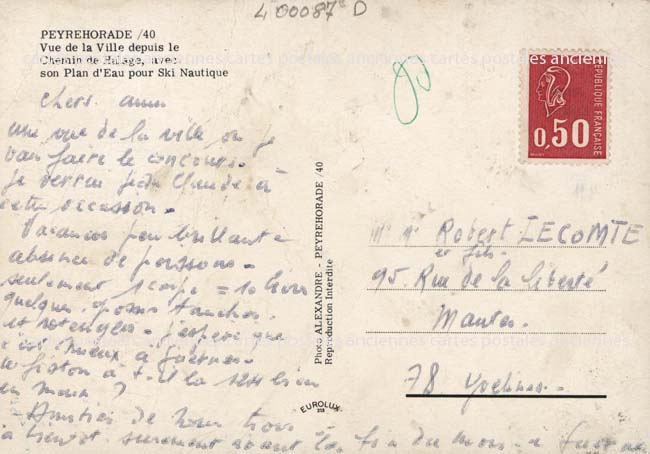 4 00087 D
PEYREHORADE /40
Vue de la Ville depuis le
Chemin de Halage, avec
son Plan d'Eau pour Ski Nautique
cartes postales anciennes cartes postales anciennes
Chers amis
une vue de la ville où je
vais faire le concours.
Je verrai Jean Claude à
cette occasion.
Vacances peu brillantes
absence de poissons.
seulement 1 carpe = 10 livres
quelques grosses tanches
et rotengles. j'espère que
c'est mieux à
le fiston a-t-il la bien
en main ?
Amitiés de nous trois
à bientôt surement avant la fin du mois
Photo ALEXANDRE - PEYREHORADE /40
Reproduction Interdite
EUROLUX
RÉPUBLIQUE FRANÇAISE
0,50
Mr Me Robert LECOMTE
et fils.
95. Rue de la liberté
Mantes.
78 Yvelines.